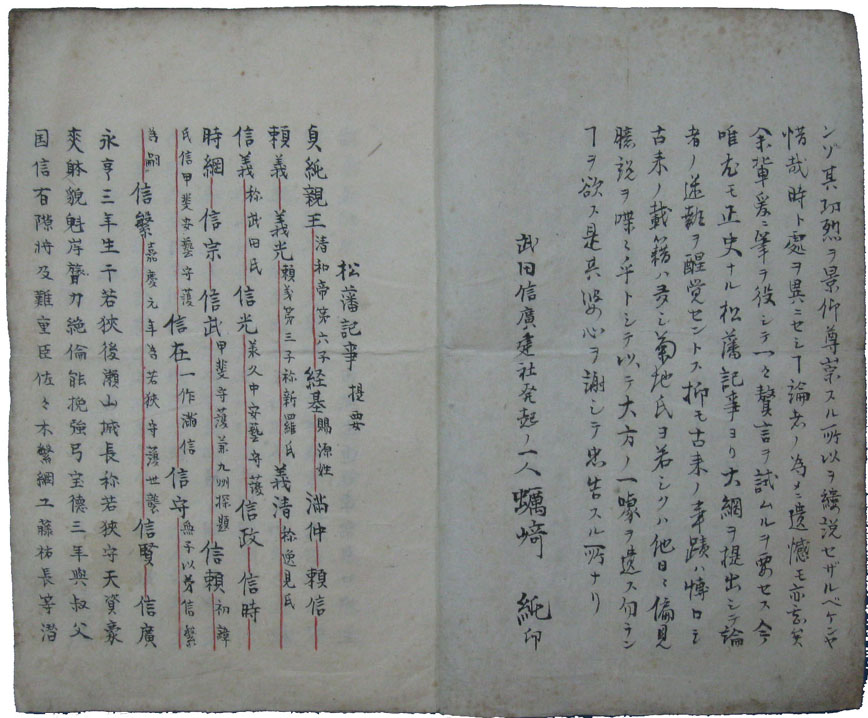 ンゾ其功烈ヲ景仰尊崇スル所以ヲ縷説セザルベケンヤ
惜哉時ト處ヲ異ニセシヿ論者ノ為メニ遺憾モ亦
余輩爰ニ筆ヲ役シテ一々贅言ヲ試ムルヲ要セス今
唯尤モ正史ナル松藩記事ヨリ大綱ヲ提出シテ論
者ノ迷ヲ醒覚セントス抑モ古来ノ事蹟ハ
古来ノ載籍ハ多シ菊地氏ヨ若シクハ他日偏見
臆説ヲ喋々乎トシテ以テ大方ノ一噱ヲ遺ス勿ラン
ヿヲ欲ス是其婆心ヲ謝シテ忠告スル所ナリ
武田信廣建社発起ノ一人 蠣崎 純 印
松藩記事 提要
貞純親王 清和帝第六子 経基 賜源姓 満仲 頼信
頼義 義光 頼義第三子称新羅氏 義清 称逸見氏
信義 称武田氏 信光 承久中安藝守護 信政 信時
時綱 信宗 信武 甲斐守護兼九州探題 信頼 初諱
氏信甲斐安藝守護 信在 一作滿信 信守 無子以弟信繁
為嗣 信繁 嘉慶元年為若狭守護世襲 信賢 信廣
永亨三年生于若狭後瀬山城長称若狭守天資豪
爽躰貌魁岸膂力絶倫能挽強弓宝德三年與叔父
国信有隙将及難童臣佐々木繁綱工藤祐長等潜